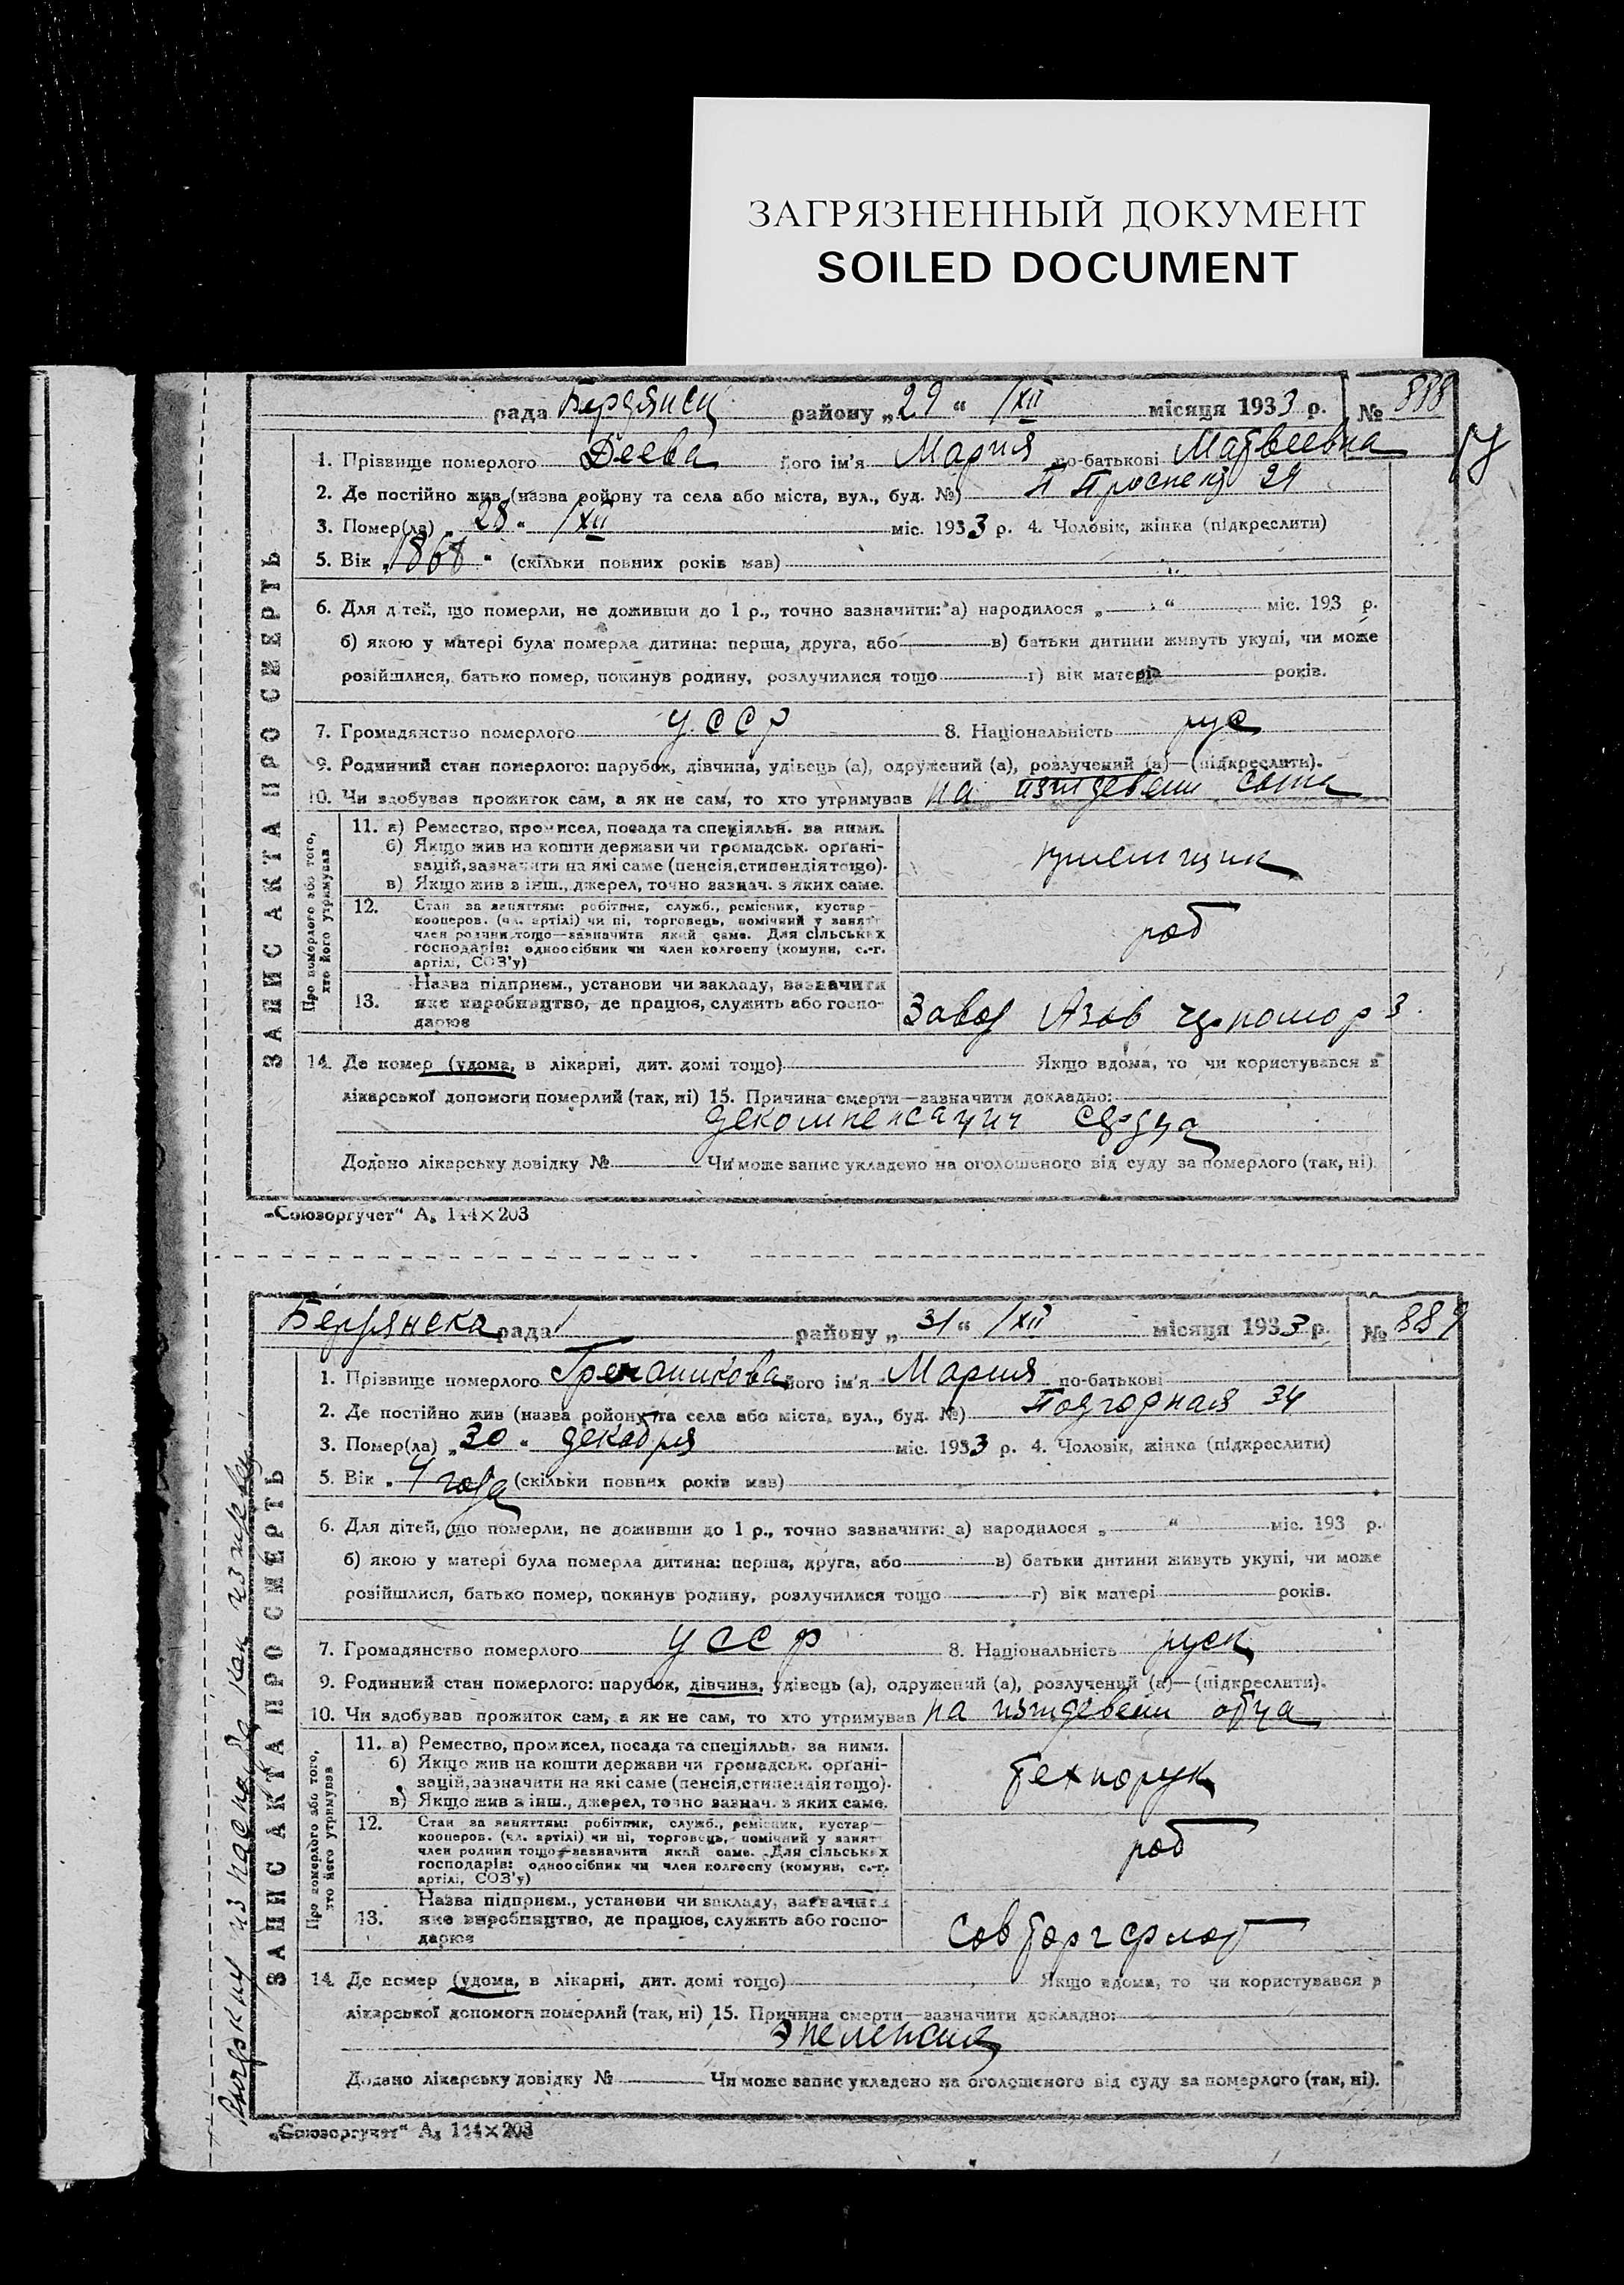 ЗАГРЯЗНЕННЫЙ ДОКУМЕНТ
SOILED DOCUMENT
рада Бердянск району „29“ /XII місяця 1933 р. № 888
1. Прізвище померлого Деева його ім'я Мария по-батькові Матвеевна
2. Де постійно жив (назва ройону та села або міста, вул., буд. №) П Проспект 24
3. Помер(ла) „28“ /XII міс. 1933 р. 4. Чоловік, жінка (підкреслити)
5. Вік „1868“ (скільки повних років мав)
6. Для дітей, що померли, не доживши до 1 р., точно зазначити: а) народилося „ “ міс. 193 р.
б) якою у матері була померла дитина: перша, друга, або в) батьки дитини живуть укупі, чи може
розійшлися, батько помер, покинув родину, розлучилися тощо г) вік матері років.
7. Громадянство померлого УССР 8. Національність рус
9. Родинний стан померлого: парубок, дівчина, удівець (а), одружений (а), розлучений (а)—(підкреслити).
10. Чи здобував прожиток сам, а як не сам, то хто утримував на изждевени сына
Про померлого або того, хто його утримував
11. а) Ремество, промисел, посада та спеціяльн. за ними.
б) Якщо жив на кошти держави чи громадськ. органі-
зацій, зазначити на які саме (пенсія, стипендія тощо).
в) Якщо жив з інш., джерел, точно зазнач. з яких саме.
приемщик
12. Стан за заняттям: робітник, служб., ремісник, кустар—
кооперов. (чл. артілі) чи ні, торговець, помічний у занят
член родини тощо—зазначити який саме. Для сільських
господарів: одноосібник чи член колгоспу (комуни, с.-г.
артілі, СОЗ'у)
роб
13. Назва підприєм., установи чи закладу, зазначити
яке виробництво, де працює, служить або госпо-
дарює
Завод Азов
14. Де помер (удома, в лікарні, дит. домі тощо) Якщо вдома, то чи користувався з
лікарської допомоги померлий (так, ні) 15. Причина смерти—зазначити докладно:
декомпенсация сердца
Додано лікарську довідку № Чи може запис укладено на оголошеного від суду за померлого (так, ні)
ЗАПИС АКТА ПРО СМЕРТЬ
„Союзоргучет“ А₅ 144×203
Бердянска рада району „31“ /XII місяця 1933 р. № 889
1. Прізвище померлого його ім'я Мария по-батькові
2. Де постійно жив (назва ройону та села або міста, вул., буд. №) Подгорная 34
3. Помер(ла) „30“ декабря міс. 1933 р. 4. Чоловік, жінка (підкреслити)
5. Вік „4 года (скільки повних років мав)
6. Для дітей, що померли, не доживши до 1 р., точно зазначити: а) народилося „ “ міс. 193 р.
б) якою у матері була померла дитина: перша, друга, або в) батьки дитини живуть укупі, чи може
розійшлися, батько помер, покинув родину, розлучилися тощо г) вік матері років.
7. Громадянство померлого УССР 8. Національність руск
9. Родинний стан померлого: парубок, дівчина, удівець (а), одружений (а), розлучений (а)—(підкреслити).
10. Чи здобував прожиток сам, а як не сам, то хто утримував на изждевени отца
Про померлого або того, хто його утримував
11. а) Ремество, промисел, посада та спеціяльн. за ними.
б) Якщо жив на кошти держави чи громадськ. органі-
зацій, зазначити на які саме (пенсія, стипендія тощо).
в) Якщо жив з інш., джерел, точно зазнач. з яких саме.
технорук
12. Стан за заняттям: робітник, служб., ремісник, кустар—
кооперов. (чл. артілі) чи ні, торговець, помічний у занят
член родини тощо—зазначити який саме. Для сільських
господарів: одноосібник чи член колгоспу (комуни, с.-г.
артілі, СОЗ'у)
роб
13. Назва підприєм., установи чи закладу, зазначити
яке виробництво, де працює, служить або госпо-
дарює
Совторгфлот
14. Де помер (удома, в лікарні, дит. домі тощо) Якщо вдома, то чи користувався з
лікарської допомоги померлий (так, ні) 15. Причина смерти—зазначити докладно:
эпелепсия
Додано лікарську довідку № Чи може запис укладено на оголошеного від суду за померлого (так, ні).
ЗАПИС АКТА ПРО СМЕРТЬ
„Союзоргучет“ А₅ 144×203